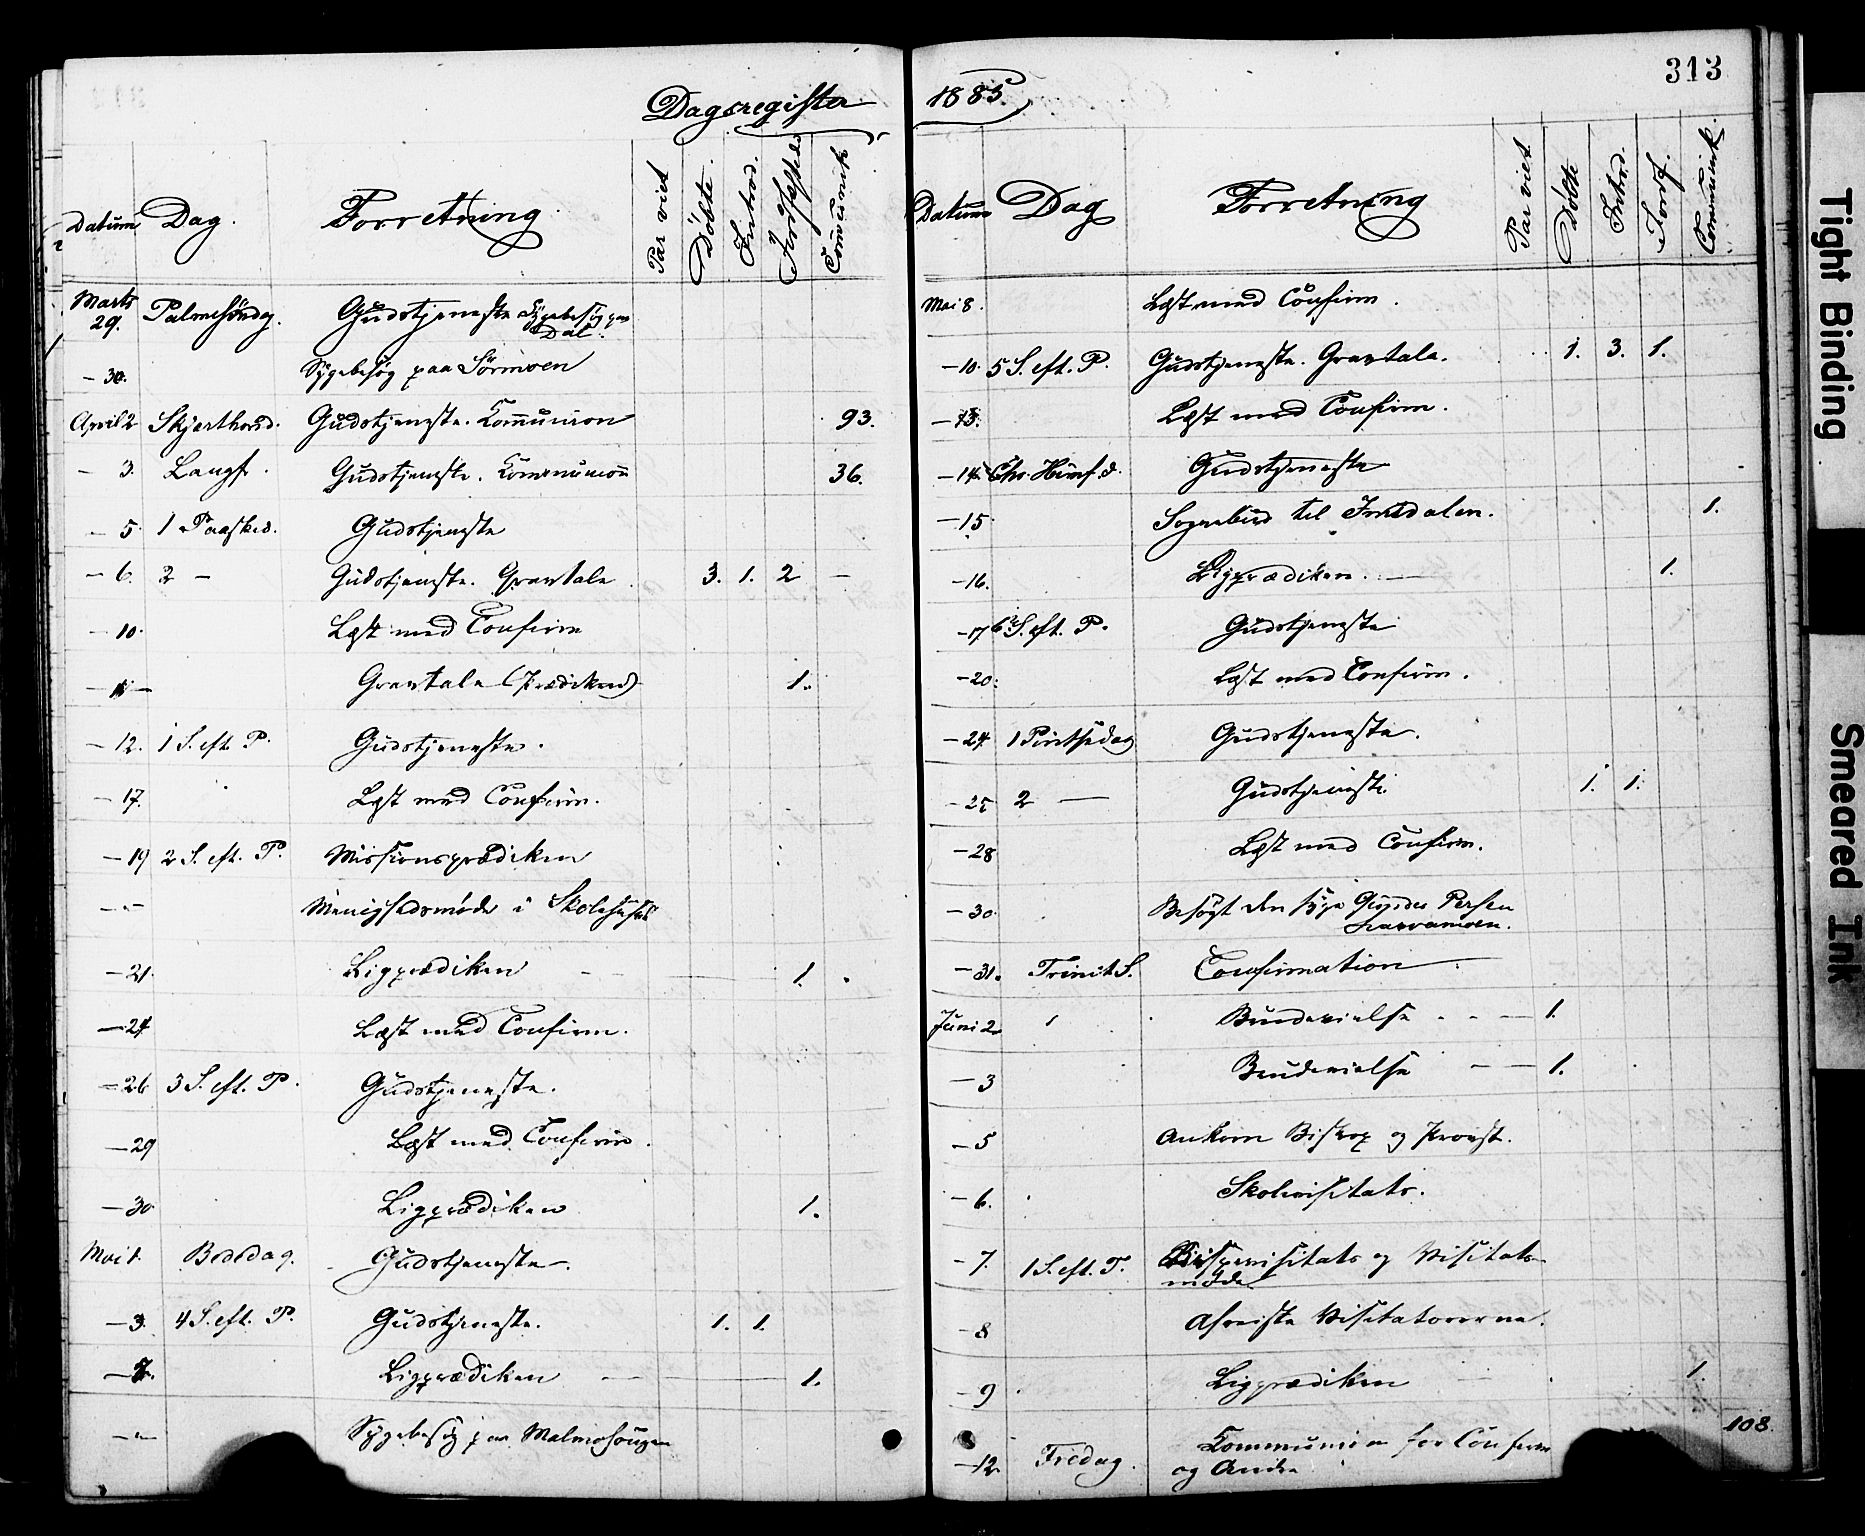 313
Dagsregister 1885.
Datum Dag. Forretning. Par viet Døbte. Introd. Jordfæstede Communik
Marts 29. Palmesöndag. Gudstjeneste Sygebesög paa Dal.
— 30. Sygebesøg paa Sörmoen
April 2 Skjærthorsd. Gudstjeneste. Kommunion 93.
— 3. Langf. Gudstjeneste. Kommunion 36.
— 5. 1 Paasked. Gudstjeneste
— 6. 2 — Gudstjeneste. Gravtale 3. 1. 2 —
— 10. Læst med Confirm
— 11 — Gravtale (Prædiken) 1.
— 12. 1 S. eft. P. Gudstjeneste.
— 17. Læst med Confirm.
— 19 2 S. eft. P. Missionsprædiken
— „ — Menighedsmøde i Skolehuset
— 21. Ligprædiken — — 1.
— 24. Læst med Confirm.
— 26 3 S. eft. P. Gudstjeneste.
— 29 Læst med Confirm.
— 30 Ligprædiken 1.
Mai 1. Bededag. Gudstjeneste.
— 3. 4 S. eft. P. Gudstjeneste. 1. 1.
— 7. Ligprædiken — — 1.
— „ — Sygebesøg paa Malmohougen
Datum Dag Forretning Par viet Døbte Introd. Jordf. Communik.
Mai 8. Læst med Confirm.
— 10. 5 S. eft. P. Gudstjeneste. Gravtale. 1. 3. 1.
— 13. Læst med Confirm.
— 14 Chr. Himf. d. Gudstjeneste
— 15 Sognebud til Imsdalen. 1.
— 16. Ligprædiken. — 1.
— 17 6 S. eft. P. Gudstjeneste
— 20. Læst med Confirm.
— 24 1 Pintsedag Gudstjeneste.
— 25 2 — Gudstjeneste 1. 1.
— 28 Læst med Confirm.
— 30. Besøgt den syge Persen
— 31. Trinit S. Confirmation
Juni 2. Brudevielse — 1.
— 3 Brudevielse — — 1.
— 5 Ankom Biskop og Provst.
— 6. Skolevisitats.
— 7. 1 S. eft. T. Bispevisitats og Visitats-
møde
— 8 Afreiste Visitatorerne.
— 9 Ligprædiken 1.
— 12. Fredag. Kommunion for Confirm 108.
og Andre
Tight Binding
Smeared Ink